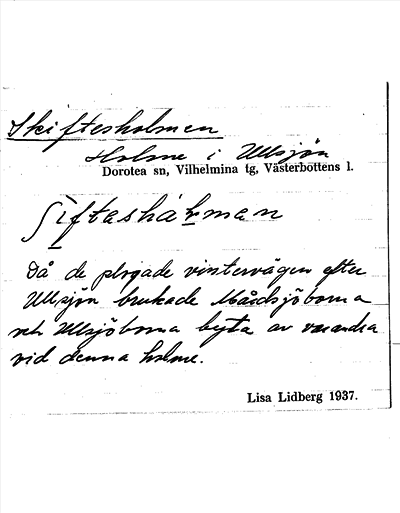 Skiftesholmen
Holme i Ullsjön
Dorotea sn, Vilhelmina tg, Västerbottens l.
ʃìftashårman
Då de plogade vintervägen efter
Ullsjön brukade Mårdsjöborna
och Ullsjöborna byta av varandra
vid denna holme.
Lisa Lidberg 1937.